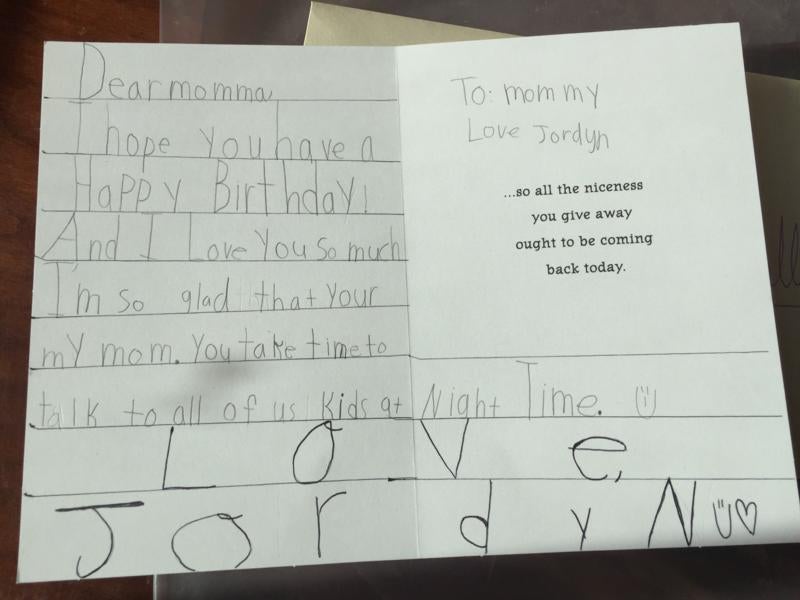 To: mommy
Love Jordyn
...so all the niceness
you give away
ought to be coming
back today.
Dear momma,
I hope you have a
Happy Birthday!
And I Love you so much
I'm so glad that your
my mom. You take time to
talk to all of us kids at Night Time.
Love,
JordyN